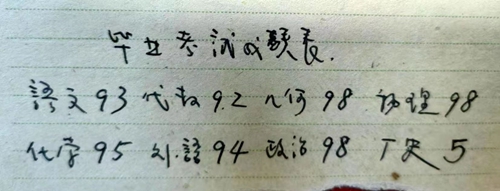 毕业考试成颖表.
語文93 代数92 几何98 物理98
化学95 外語94 政治98 丁史5